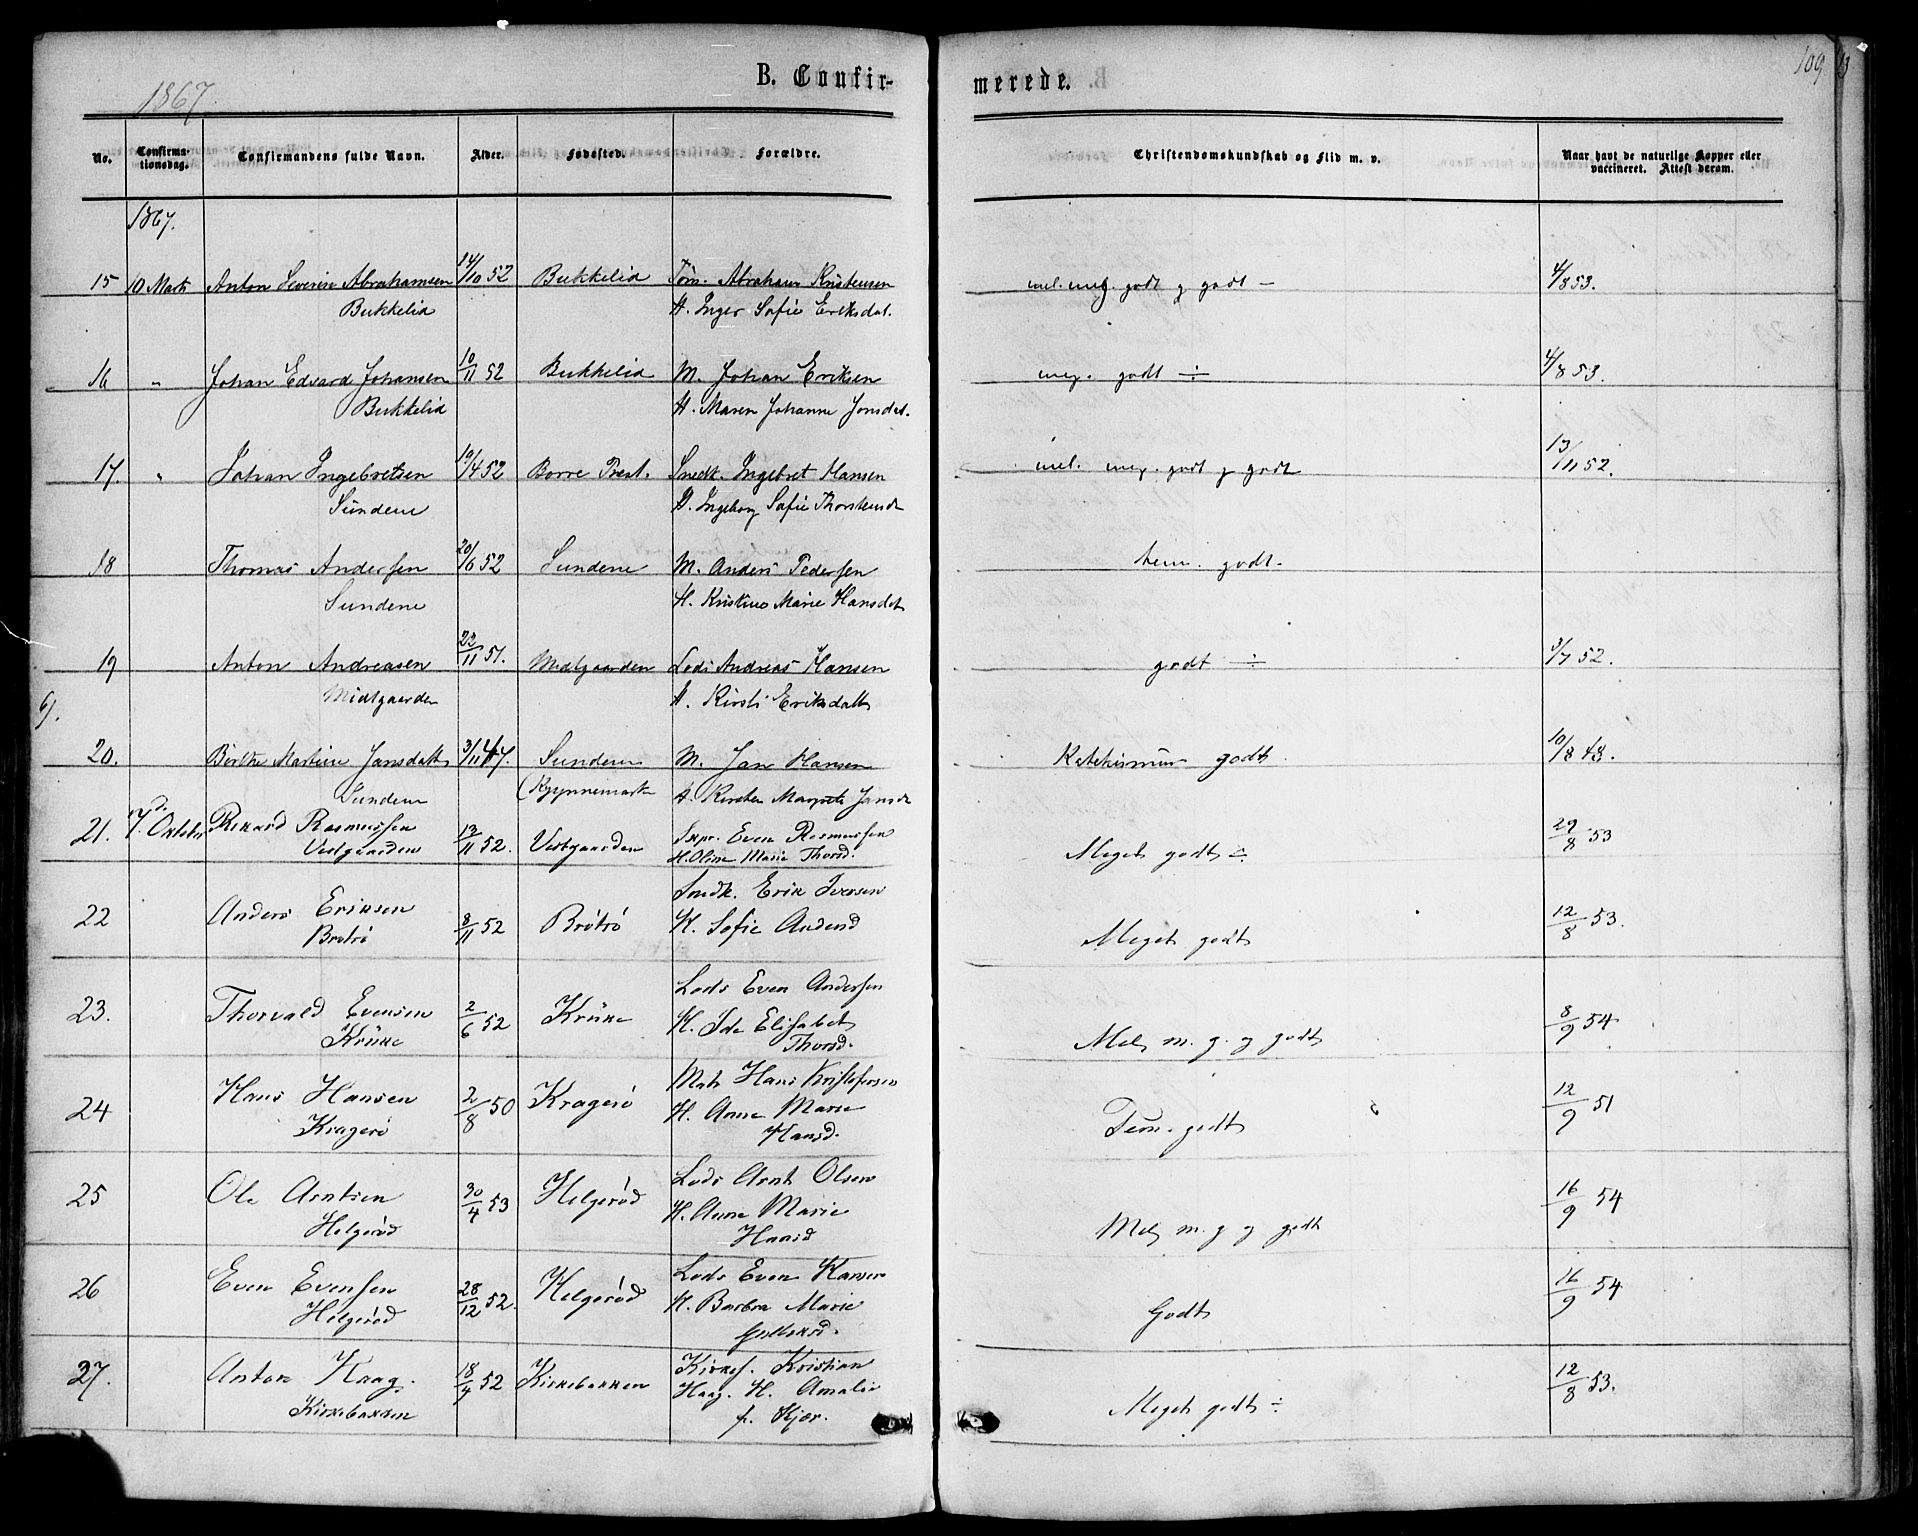 1867.
B. Confir-
merede.
109
No.
Confirma-
tionsdag.
Confirmandens fulde Navn.
Alder.
Fødested.
Forældre.
Christendomskundskab og Flid m. v.
Naar havt de naturlige Kopper eller
vaccineret. Attest derom.
1867.
15 10 Marts Anton Severin Abrahamsen 14/10 52 Bukkelid Tøm. Abraham Kristensen mel. meg. godt g godt – 4/8 53.
Bukkelid H. Inger Sofie Eriksdat.
16 " Johan Edvard Johansen 10/11 52 Bukkelid M. Johan Eriksen meg. godt ÷ 4/8 53.
Bukkelid H. Maren Johanne Jonsdat.
17. " Johan Ingebretsen 10/4 52 Borre Prest. Snedk. Ingebret Hansen mel. meg. godt g godt 13/11 52.
Sundene H. Ingeborg Sofie Thorstensdt
18 Thomas Andersen 20/6 52 Sundene M. Anders Pedersen tem. godt.
Sundene H. Kristine Marie Hansdat
19 Anton Andreasen 22/11 51. Midtgaarden Lods Andreas Hansen godt ÷ 3/7 52.
Midtgaarden H. Kirsti Eriksdatt
6).
20. Berthe Martine Jansdatt 3/11 47. Sundene M. Jan Hansen Katekismus godt 10/8 48.
Sundene H. Kirsten Margrete Jansd
21. d. 7. Oktober Rikard Rasmussen 13/11 52. Vestgaarden Skpr. Even Rasmussen Meget godt ÷ 29/8 53
Vestgaarden H. Oline Marie Thorsd.
22 Anders Eriksen 8/11 52 Brøtsø Snedk. Erik Iversen Meget godt 12/8 53.
Brøtsø H. Sofie Andersd
23. Thorvald Evensen 2/6 52 Kruke Lods Even Andersen Mel m. g. g godt 8/9 54
Kruke H. Ida Elisabet
Thorsd.
24 Hans Hansen 2/8 50 Kragerø Matr Hans Kristofersen Tem. godt 12/9 51
Kragerø H. Anne Marie
Hansd.
25 Ole Arntsen 30/4 53 Helgerød Lods Arnt Olsen Mel m. g g godt 16/9 54
Helgerød H. Anne Marie
Hansd
26 Even Evensen 28/12 52. Helgerød Lods Even Hansen Godt 16/9 54
Helgerød H. Barbra Marie
27. Anton Haag. 18/4 52 Kirkebakken Kirkes. Kristian Meget godt ÷ 12/8 53.
Kirkebakken Haag. H. Amalie
f. Kjær.